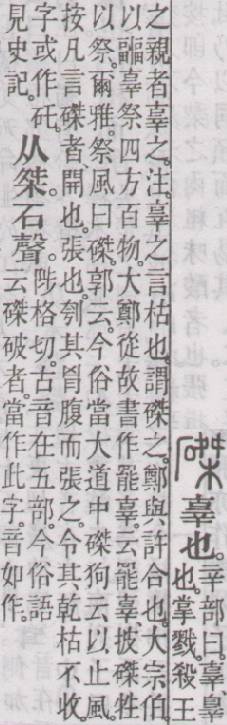 磔辜也。辛部曰。辜、辠
也。掌戮。殺王
之親者辜之。注。辜之言枯也。謂磔之。鄭與許合也。大宗伯
以疈辜祭四方百物。大鄭從故書作罷辜。云罷辜、披磔牲
以祭。爾雅。祭風曰磔。郭云。今俗當大道中磔狗云以止風。
按凡言磔者、開也。張也。刳其胷腹而張之。令其乾枯不收。
字或作矺。
見史記。
从桀石聲。
陟格切。古音在五部。今俗語
云磔破者。當作此字。音如作。